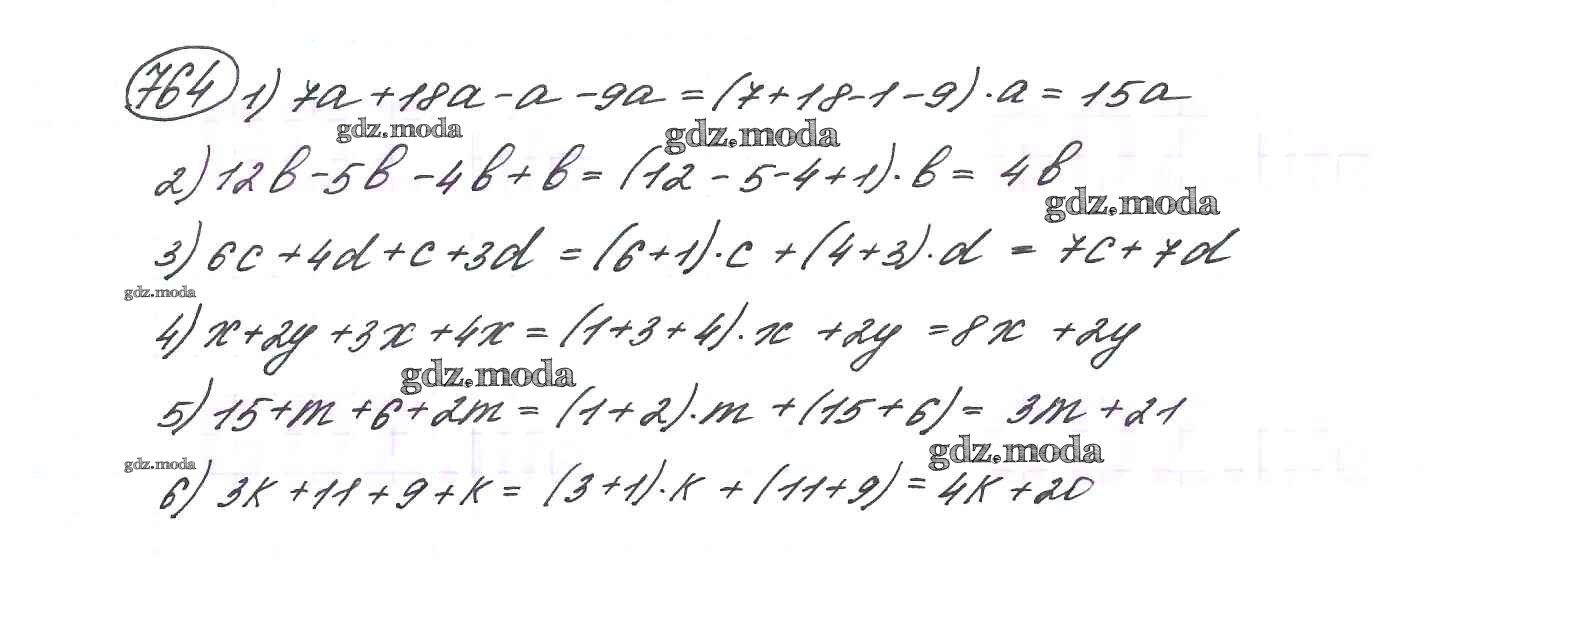 764 1) 7a + 18a - a - 9a = (7 + 18 - 1 - 9) · a = 15a
gdz.moda gdz.moda
2) 12b - 5b - 4b + b = (12 - 5 - 4 + 1) · b = 4b
gdz.moda
3) 6c + 4d + c + 3d = (6 + 1) · c + (4 + 3) · d = 7c + 7d
gdz.moda
4) x + 2y + 3x + 4x = (1 + 3 + 4) · x + 2y = 8x + 2y
gdz.moda
5) 15 + m + 6 + 2m = (1 + 2) · m + (15 + 6) = 3m + 21
gdz.moda gdz.moda
6) 3k + 11 + 9 + k = (3 + 1) · k + (11 + 9) = 4k + 20